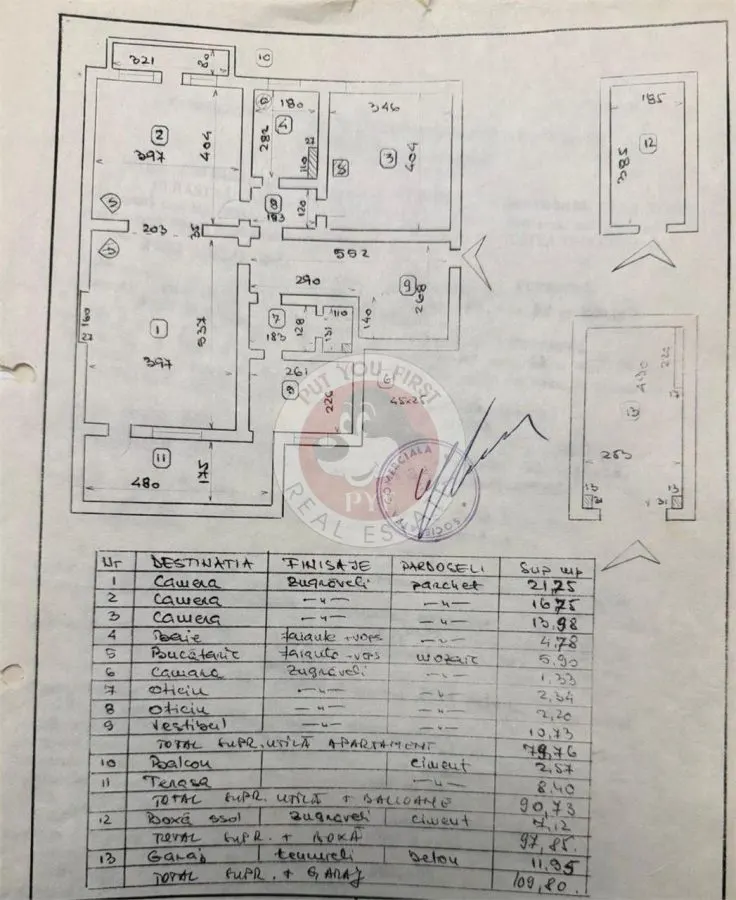 10
321
80
180
346
185
2
4
12
282
404
3
404
385
397
110
S
8
120
193
203
35
552
290
9
268
100
1
537
7
128
110
140
183
131
397
261
6
226
45x25
220
490
253
11
175
480
PUT YOU FIRST
PYF
REAL ESTATE
SOCIETATEA COMERCIALA
Nr DESTINATIA FINISAJE PARDOSELI Sup mp
1 Camera zugraveli parchet 21,25
2 Camera —"— —"— 16,75
3 Camera —"— —"— 13,98
4 Baie faianta +vops —"— 4,78
5 Bucătarie faianta +vops mozaic 5,90
6 Camara zugraveli —"— 1,33
7 Oficiu —"— —"— 2,34
8 Oficiu —"— —"— 2,20
9 Vestibul —"— —"— 10,73
TOTAL SUPR. UTILĂ APARTAMENT 79,76
10 Balcon ciment 2,57
11 Terasa —"— 8,40
TOTAL SUPR. UTILĂ + BALCOANE 90,73
12 Boxă ssol zugraveli ciment 7,12
TOTAL SUPR. + BOXĂ 97,85
13 Garaj tencuieli beton 11,95
TOTAL SUPR. + GARAJ 109,80